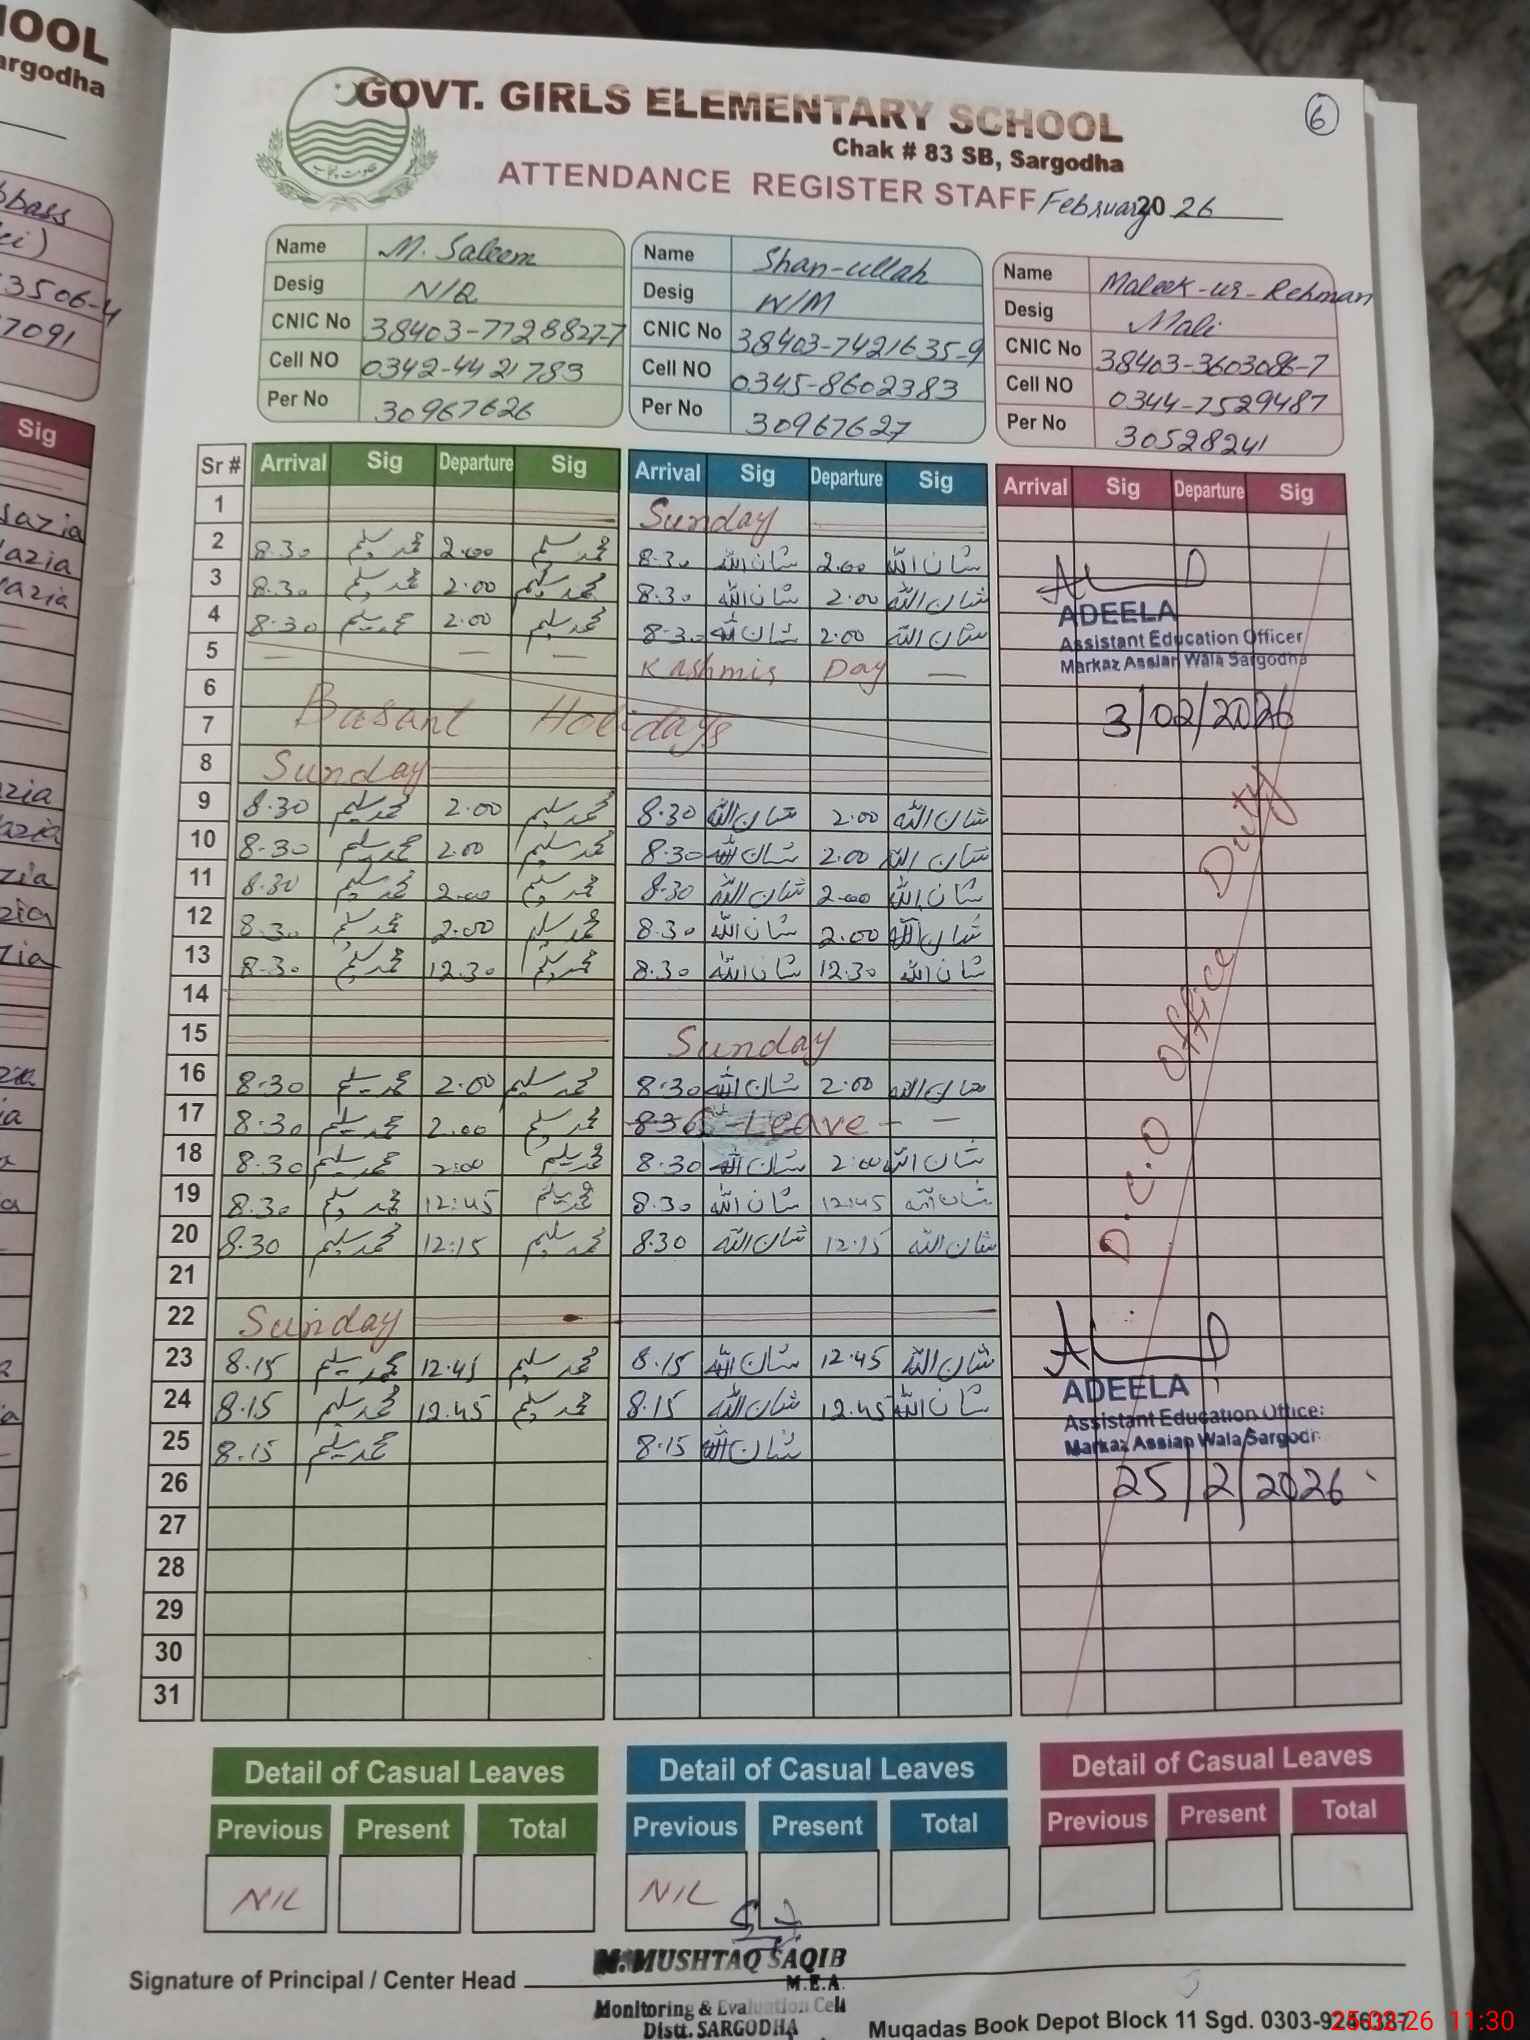 HOOL
argodha
GOVT. GIRLS ELEMENTARY SCHOOL
6
Chak # 83 SB, Sargodha
ATTENDANCE REGISTER STAFF February 20 26
حکومت پنجاب
bbass
3506-4
7091
Sig
Name M. Saleem
Desig N/Q
CNIC No 38403-7728827-7
Cell NO 0342-4421783
Per No 30967626
Name Shan-ullah
Desig W/M
CNIC No 38403-7421635-9
Cell NO 0345-8602383
Per No 30967627
Name Maleek-ur-Rehman
Desig Mali
CNIC No 38403-3603086-7
Cell NO 0344-7529487
Per No 30528241
Sr # Arrival Sig Departure Sig Arrival Sig Departure Sig Arrival Sig Departure Sig
1 Sunday
2 8.30 محمد سلیم 2.00 محمد سلیم 8.30 شان اللہ 2.00 شان اللہ
3 8.30 محمد سلیم 2.00 محمد سلیم 8.30 شان اللہ 2.00 شان اللہ
4 8.30 محمد سلیم 2.00 محمد سلیم 8.30 شان اللہ 2.00 شان اللہ
5 — — — Kashmir Day —
6
7 Basant Holidays
8 Sunday
9 8.30 محمد سلیم 2.00 محمد سلیم 8.30 شان اللہ 2.00 شان اللہ
10 8.30 محمد سلیم 2.00 محمد سلیم 8.30 شان اللہ 2.00 شان اللہ
11 8.30 محمد سلیم 2.00 محمد سلیم 8.30 شان اللہ 2.00 شان اللہ
12 8.30 محمد سلیم 2.00 محمد سلیم 8.30 شان اللہ 2.00 شان اللہ
13 8.30 محمد سلیم 12.30 محمد سلیم 8.30 شان اللہ 12.30 شان اللہ
14
15 Sunday
16 8.30 محمد سلیم 2.00 محمد سلیم 8.30 شان اللہ 2.00 شان اللہ
17 8.30 محمد سلیم 2.00 محمد سلیم 8.30 Leave — —
18 8.30 محمد سلیم 2:00 محمد سلیم 8.30 شان اللہ 2:00 شان اللہ
19 8.30 محمد سلیم 12:45 محمد سلیم 8.30 شان اللہ 12:45 شان اللہ
20 8.30 محمد سلیم 12:15 محمد سلیم 8.30 شان اللہ 12:15 شان اللہ
21
22 Sunday
23 8.15 محمد سلیم 12.45 محمد سلیم 8.15 شان اللہ 12.45 شان اللہ
24 8.15 محمد سلیم 12.45 محمد سلیم 8.15 شان اللہ 12.45 شان اللہ
25 8.15 محمد سلیم 8.15 شان اللہ
26
27
28
29
30
31
ADEELA
Assistant Education Officer
Markaz Assian Wala Sargodha
3/02/2026
D.C.O Office Duty
ADEELA
Assistant Education Officer
Markaz Assian Wala Sargodh
25/2/2026
Detail of Casual Leaves
Previous Present Total
NIL
Detail of Casual Leaves
Previous Present Total
NIL
Detail of Casual Leaves
Previous Present Total
Signature of Principal / Center Head
M. MUSHTAQ SAQIB
M.E.A.
Monitoring & Evaluation Cell
Distt. SARGODHA
Muqadas Book Depot Block 11 Sgd. 0303-9
25.02.26 11:30